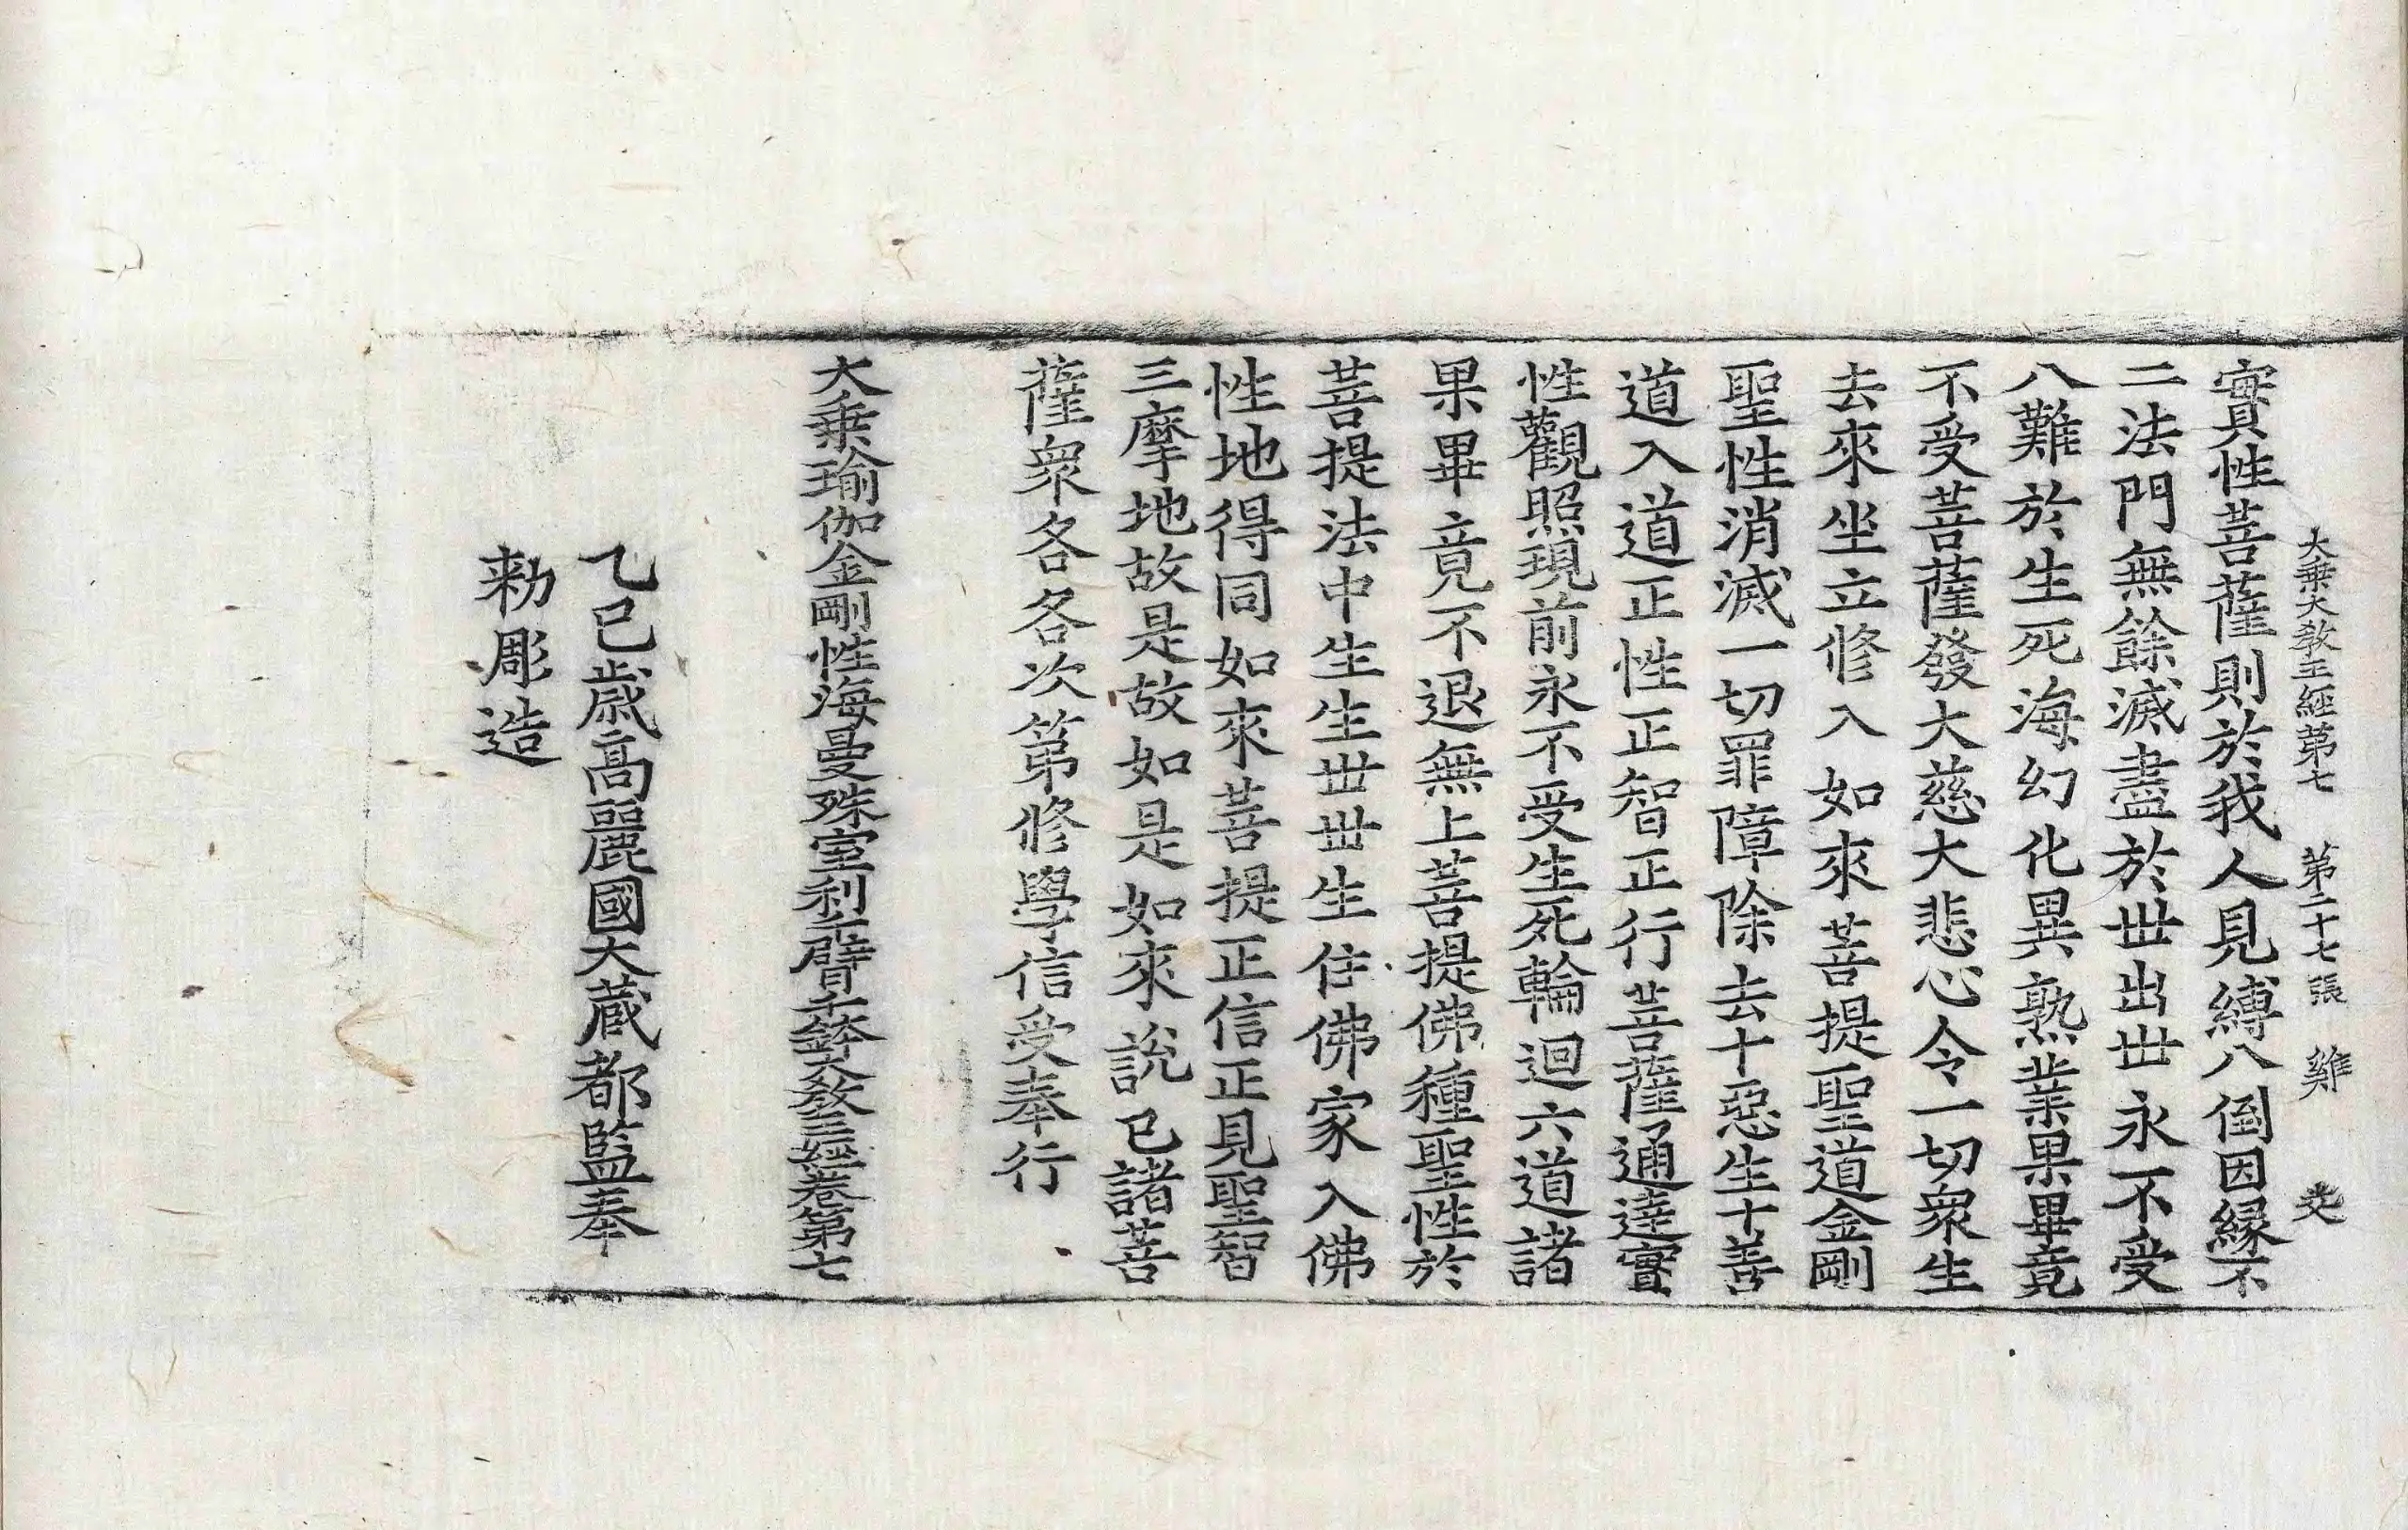 大乗大敎王經第七 第二十七張 雞
實性菩薩則於我人見縛八倒因縁不
二法門無餘滅盡於世出世永不受
八難於生死海幻化異熟業果畢竟
不受菩薩發大慈大悲心令一切衆生
去來坐立修入如來菩提聖道金剛
聖性消滅一切罪障除去十惡生十善
道入道正性正智正行菩薩通達實
性觀照現前永不受生死輪迴六道諸
果畢竟不退無上菩提佛種聖性於
菩提法中生生世世生住佛家入佛
性地得同如來菩提正信正見聖智
三摩地故是故如是如來說已諸菩
薩衆各各次第修學信受奉行
大乗瑜伽金剛性海曼殊室利千臂千鉢大敎王經卷第七
乙巳歳高麗國大蔵都監奉
勑彫造